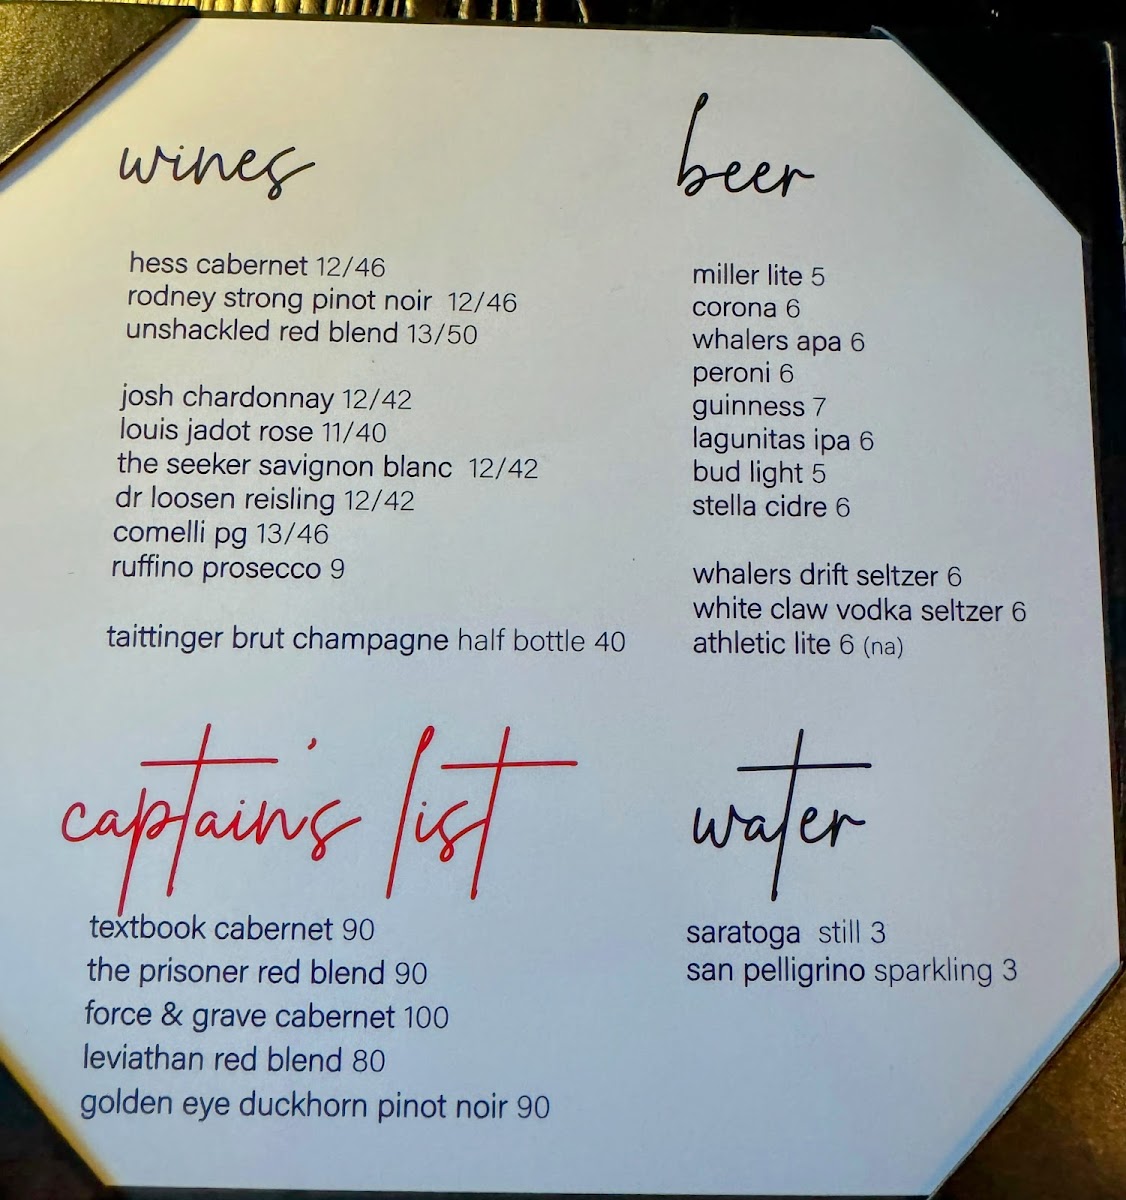 wines
hess cabernet 12/46
rodney strong pinot noir 12/46
unshackled red blend 13/50
josh chardonnay 12/42
louis jadot rose 11/40
the seeker savignon blanc 12/42
dr loosen reisling 12/42
comelli pg 13/46
ruffino prosecco 9
taittinger brut champagne half bottle 40
beer
miller lite 5
corona 6
whalers apa 6
peroni 6
guinness 7
lagunitas ipa 6
bud light 5
stella cidre 6
whalers drift seltzer 6
white claw vodka seltzer 6
athletic lite 6 (na)
captain's list
textbook cabernet 90
the prisoner red blend 90
force & grave cabernet 100
leviathan red blend 80
golden eye duckhorn pinot noir 90
water
saratoga still 3
san pelligrino sparkling 3